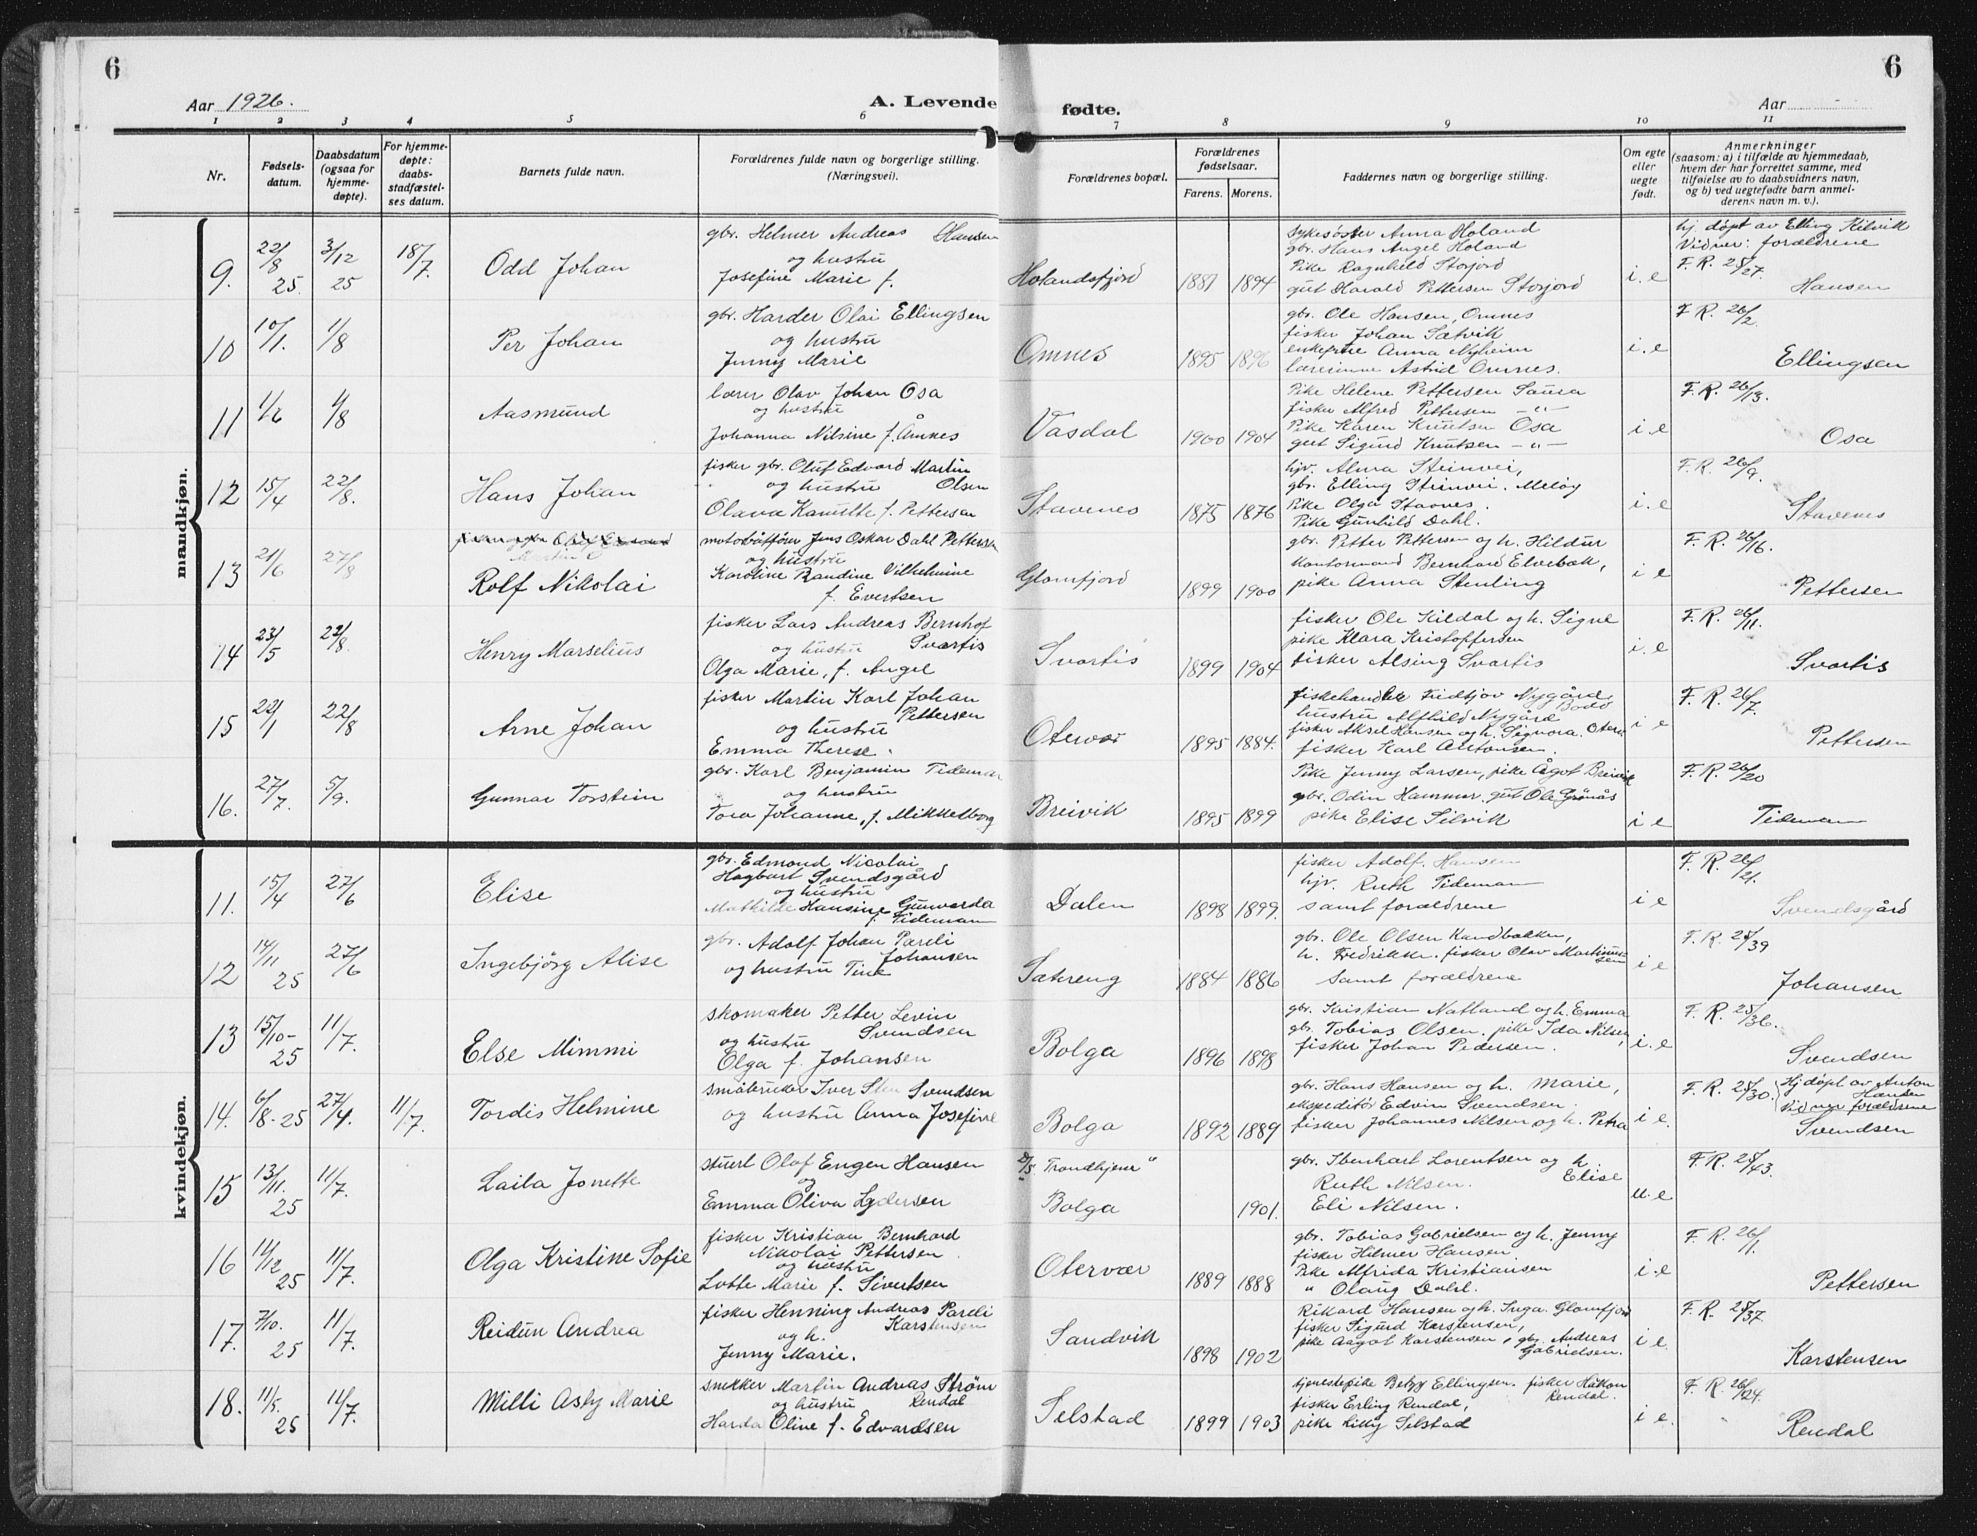 6
6
Aar 1926.
A. Levende fødte.
Aar
1 2 3 4 5 6 7 8 9 10 11
Nr.
Fødsels-
datum.
Daabsdatum
(ogsaa for
hjemme-
døpte).
For hjemme-
døpte:
daabs-
stadfæstel-
ses datum.
Barnets fulde navn.
Forældrenes fulde navn og borgerlige stilling.
(Næringsvei).
Forældrenes bopæl.
Forældrenes
fødselsaar.
Farens. Morens.
Faddernes navn og borgerlige stilling.
Om egte
eller
uegte
født.
Anmerkninger
(saasom: a) i tilfælde av hjemmedaab,
hvem der har forrettet samme, med
tilføielse av to daabsvidners navn,
og b) ved uegtefødte barn anmel-
derens navn m. v.).
mandkjøn.
9. 22/8 25. 3/12 25 18/7. Odd Johan
gbr. Helmer Andreas Hansen
og hustru
Josefine Marie f.
Holandsfjord 1887 1894
sykesøster Anna Holand
gbr. Hans Angel Holand
Pike Ragnhild Storjord
gut Harald Pettersen Storjord
i. e
hj. døpt av Elling Kilvik
Vidner: forældrene
F. R. 25/27.
Hansen
10 10/1. 1/8 Per Johan
gbr. Harder Olai Ellingsen
og hustru
Jenny Marie
Omnes 1895 1896
gbr. Ole Hansen, Omnes
fisker Johan Sætvik
enkefrue Anna Nyheim
lærerinne Astrid Omnes.
i. e
F. R. 26/2.
Ellingsen
11 1/6 1/8 Aasmund
lærer Olav Johan Osa
og hustru
Johanna Nilsine f. Åmnes
Vasdal 1900 1904
Pike Helene Pettersen Saura
fisker Alfred Pettersen -"-
Pike Karen Knutsen Osa
gut Sigurd Knutsen -"-
i e
F. R. 26/13.
Osa
12 15/4 22/8. Hans Johan
fisker gbr. Oluf Edvard Martin
og hustru Olsen
Olava f. Pettersen
Stavenes 1875 1876
hjv. Alma Steinvei,
gbr. Elling Steinvei. Meløy
Pike Olga Stavnes.
Pike Gunhild Dahl.
i. e
F. R. 26/9.
Stavenes
13 21/6 27/8 Rolf Nikolai
motorbåtfører Jens Oskar Dahl Pettersen
og hustru
Karoline Randine Vilhelmine
f. Evertsen
Glomfjord 1899 1900
gbr. Petter Pettersen og h. Hildur
Kontormand Bernhard Elvebak,
pike Anna Stenling
i e
F. R. 26/16.
Pettersen
14 23/5 22/8. Henry Marselius
fisker Lars Andreas Bernhof
og hustru Svartis
Olga Marie, f. Angel
Svartis 1899 1904
fisker Ole Kildal og h. Signe
pike Klara Kristoffersen
fisker Alsing Svartis
i. e
F. R. 26/11.
Svartis
15 22/1 22/8 Arne Johan
fisker Martin Karl Johan
og hustru Pettersen
Emma Therese.
Otervær 1895 1884.
fiskehandler Fridtjov Nygård, Bodø
hustru Alfhild Nygård
fisker Aksel Hansen og h. Signora. Oterv.
fisker Karl Antonsen.
i e
F. R. 26/7.
Pettersen
16. 27/7. 5/9. Gunnar Torstein
gbr. Karl Benjamin Tideman
og hustru
Tora Johanne, f. Mikkelborg
Breivik 1895 1899
Pike Jenny Larsen, pike Ågot Breivik
gbr. Odin Hammer. gut Ole Grønås
pike Elise Selvik
i e
F. R. 26/20
Tideman
kvindekjøn.
11. 15/4 27/6 Elise
gbr. Edmond Nicolai
Hagbart Svendsgård
og hustru
Mathilde Hansine Gunvarda
f. Tideman
Dalen 1898 1899.
fisker Adolf. Hansen
hjv. Ruth Tideman
samt forældrene
i e
F. R. 26/21.
Svendsgård
12 14/11 25 27/6 Ingebjörg Alise
gbr. Adolf Johan Pareli
og hustru Tine Johansen
Sætreng 1884 1886
gbr. Ole Olsen Kandbakken,
h. Fredrikke. fisker Olav Martinussen
samt forældrene
i e
F. R. 25/39
Johansen
13 15/10- 25 11/7. Else Mimmi
skomaker Petter Levin
og hustru Svendsen
Olga f. Johansen
Bolga 1896 1898
gbr. Kristian Natland og h. Emma
gbr. Tobias Olsen. pike Ida Nilsen,
fisker Johan Pedersen.
i. e
F. R. 25/36.
Svendsen
14. 6/8-25 27/4. 11/7. Tordis Helmine
småbruker Iver Sten Svendsen
og hustru Anna Josefine
Bolga 1892 1889
gbr. Hans Hansen og h. Marie,
ekspeditör Edvin Svendsen.
fisker Johannes Nilsen og h. Petra
i e.
F. R. 25/30. Hj.døpt av Anton
Hansen
Vidner forældrene
Svendsen
15 13/11. 25 11/7. Laila Jonette
stuert Olaf Eugen Hansen
og
Emma Oliva Lydersen
D/S "Trondhjem"
Bolga 1901.
gbr. Ibenhart Lorentsen og h.
Ruth Nilsen. Elise
Eli Nilsen.
u. e
F. R. 25/43.
16 14/12 25 11/7. Olga Kristine Sofie
fisker Kristian Bernhard
Nikolai Pettersen.
og hustru
Lotte Marie f. Sivertsen
Otervær 1889 1888
gbr. Tobias Gabrielsen og h. Jenny
fisker Hilmer Hansen.
Pike Alfrida Kristiansen
" Olaug Dahl.
i. e
F. R. 26/1.
Pettersen
17. 7/10. 25 11/7. Reidun Andrea
fisker Henning Andreas Pareli
og h. Karstensen
Jenny Marie.
Sandvik 1898 1902
Rikard Hansen og h. Inga. Glomfjord
fisker Sigurd Karstensen,
pike Aagot Karstensen, gbr. Andreas
Gabrielsen.
i e.
F. R. 25/37
Karstensen
18. 11/5. 25 11/7. Milli Asby Marie
snekker Martin Andreas Strøm
og hustru Rendal
Harda Oline f. Edvardsen
Selstad 1899 1903
tjenestepike Betzy Ellingsen. fisker Håkon
fisker Erling Rendal, Rendal.
pike Lilly Selstad
i e.
F. R. 26/24.
Rendal